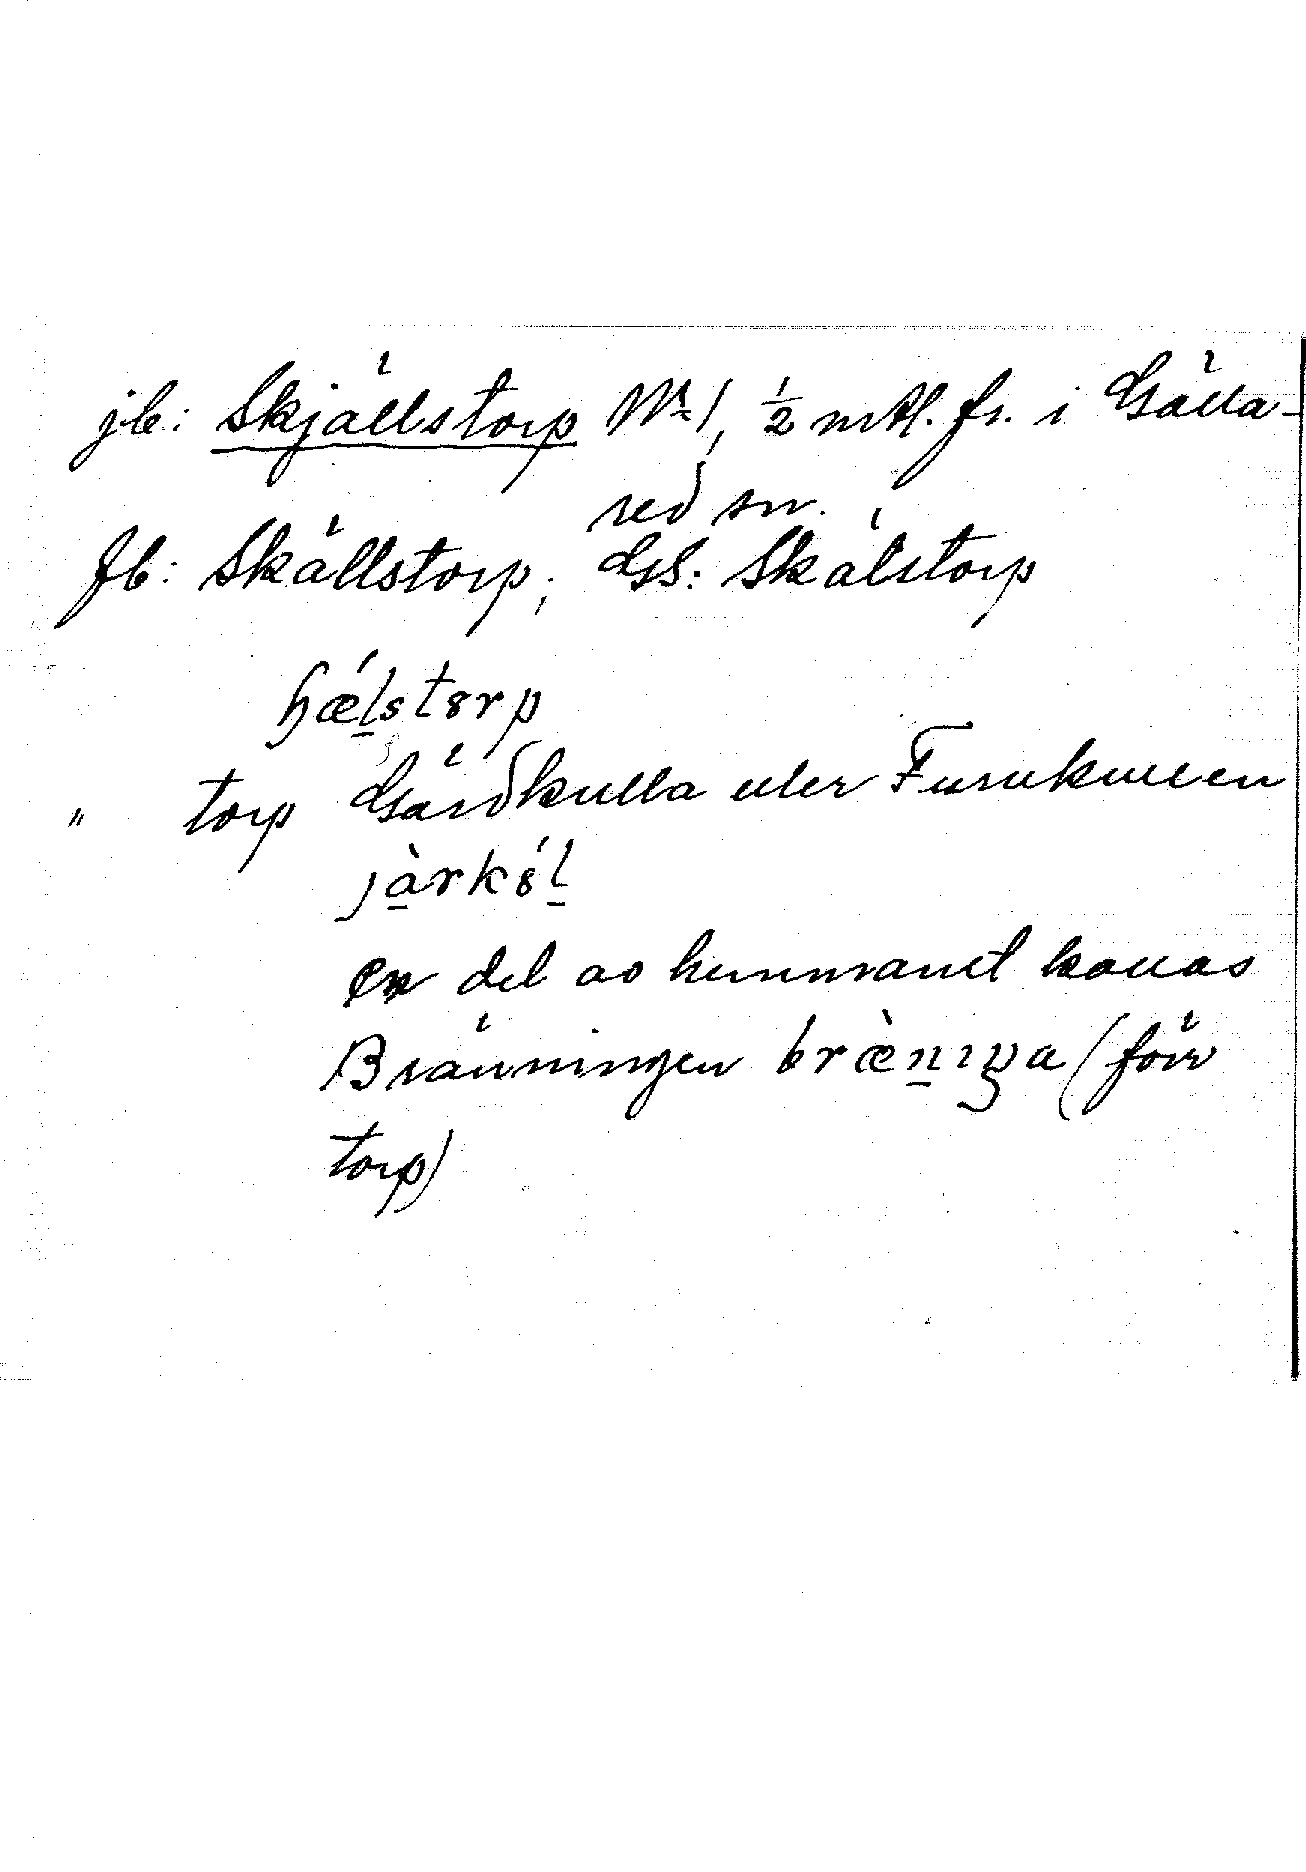 jb: Skjällstorp Nr 1, 1/2 mtl. fr. i Gälla-
red sn.
fb: Skällstorp; GS: Skälstorp
torp Gärdkulla eller Furukullen
en del av hemmanet kallas
Bränningen (förr
torp)